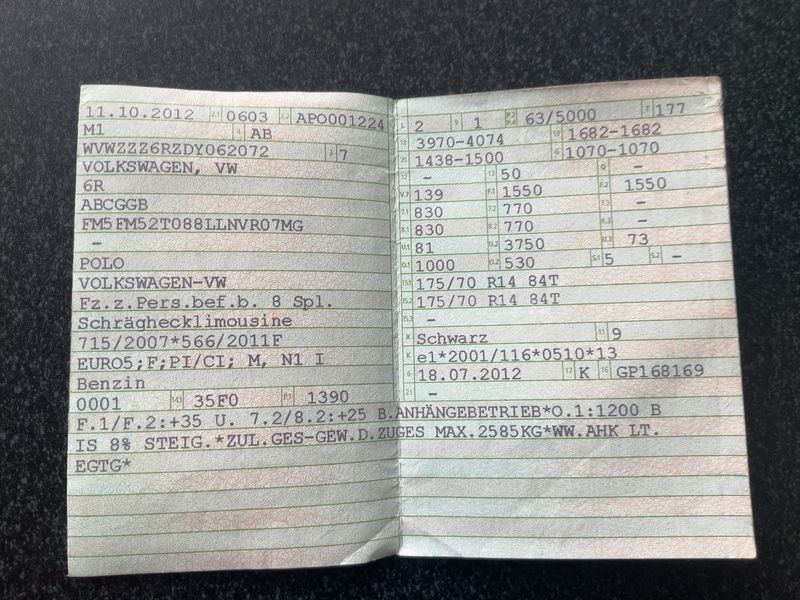 11.10.2012 2.1 0603 2.2 APO001224
M1 4 AB
WVWZZZ6RZDY062072 3 7
VOLKSWAGEN, VW
6R
ABCGGB
FM5FM52T088LLNVR07MG
-
POLO
VOLKSWAGEN-VW
Fz.z.Pers.bef.b. 8 Spl.
Schräghecklimousine
715/2007*566/2011F
EURO5;F;PI/CI; M, N1 I
Benzin
0001 14.1 35F0 P.1 1390
L 2 9 1 P.2 P.4 63/5000 T 177
18 3970-4074 19 1682-1682
20 1438-1500 G 1070-1070
12 - 13 50 Q -
V.7 139 F.1 1550 F.2 1550
7.1 830 7.2 770 7.3 -
8.1 830 8.2 770 8.3 -
U.1 81 U.2 3750 U.3 73
O.1 1000 O.2 530 S.1 5 S.2 -
15.1 175/70 R14 84T
15.2 175/70 R14 84T
15.3 -
R Schwarz 11 9
K e1*2001/116*0510*13
6 18.07.2012 17 K 16 GP168169
21 -
F.1/F.2:+35 U. 7.2/8.2:+25 B.ANHÄNGEBETRIEB*O.1:1200 B
IS 8% STEIG.*ZUL.GES-GEW.D.ZUGES MAX.2585KG*WW.AHK LT.
EGTG*